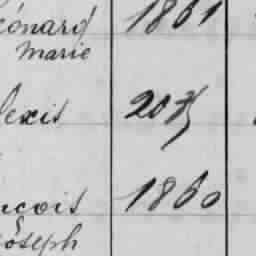 éonard 1861
Marie
lexis
nçois 1860
Joseph